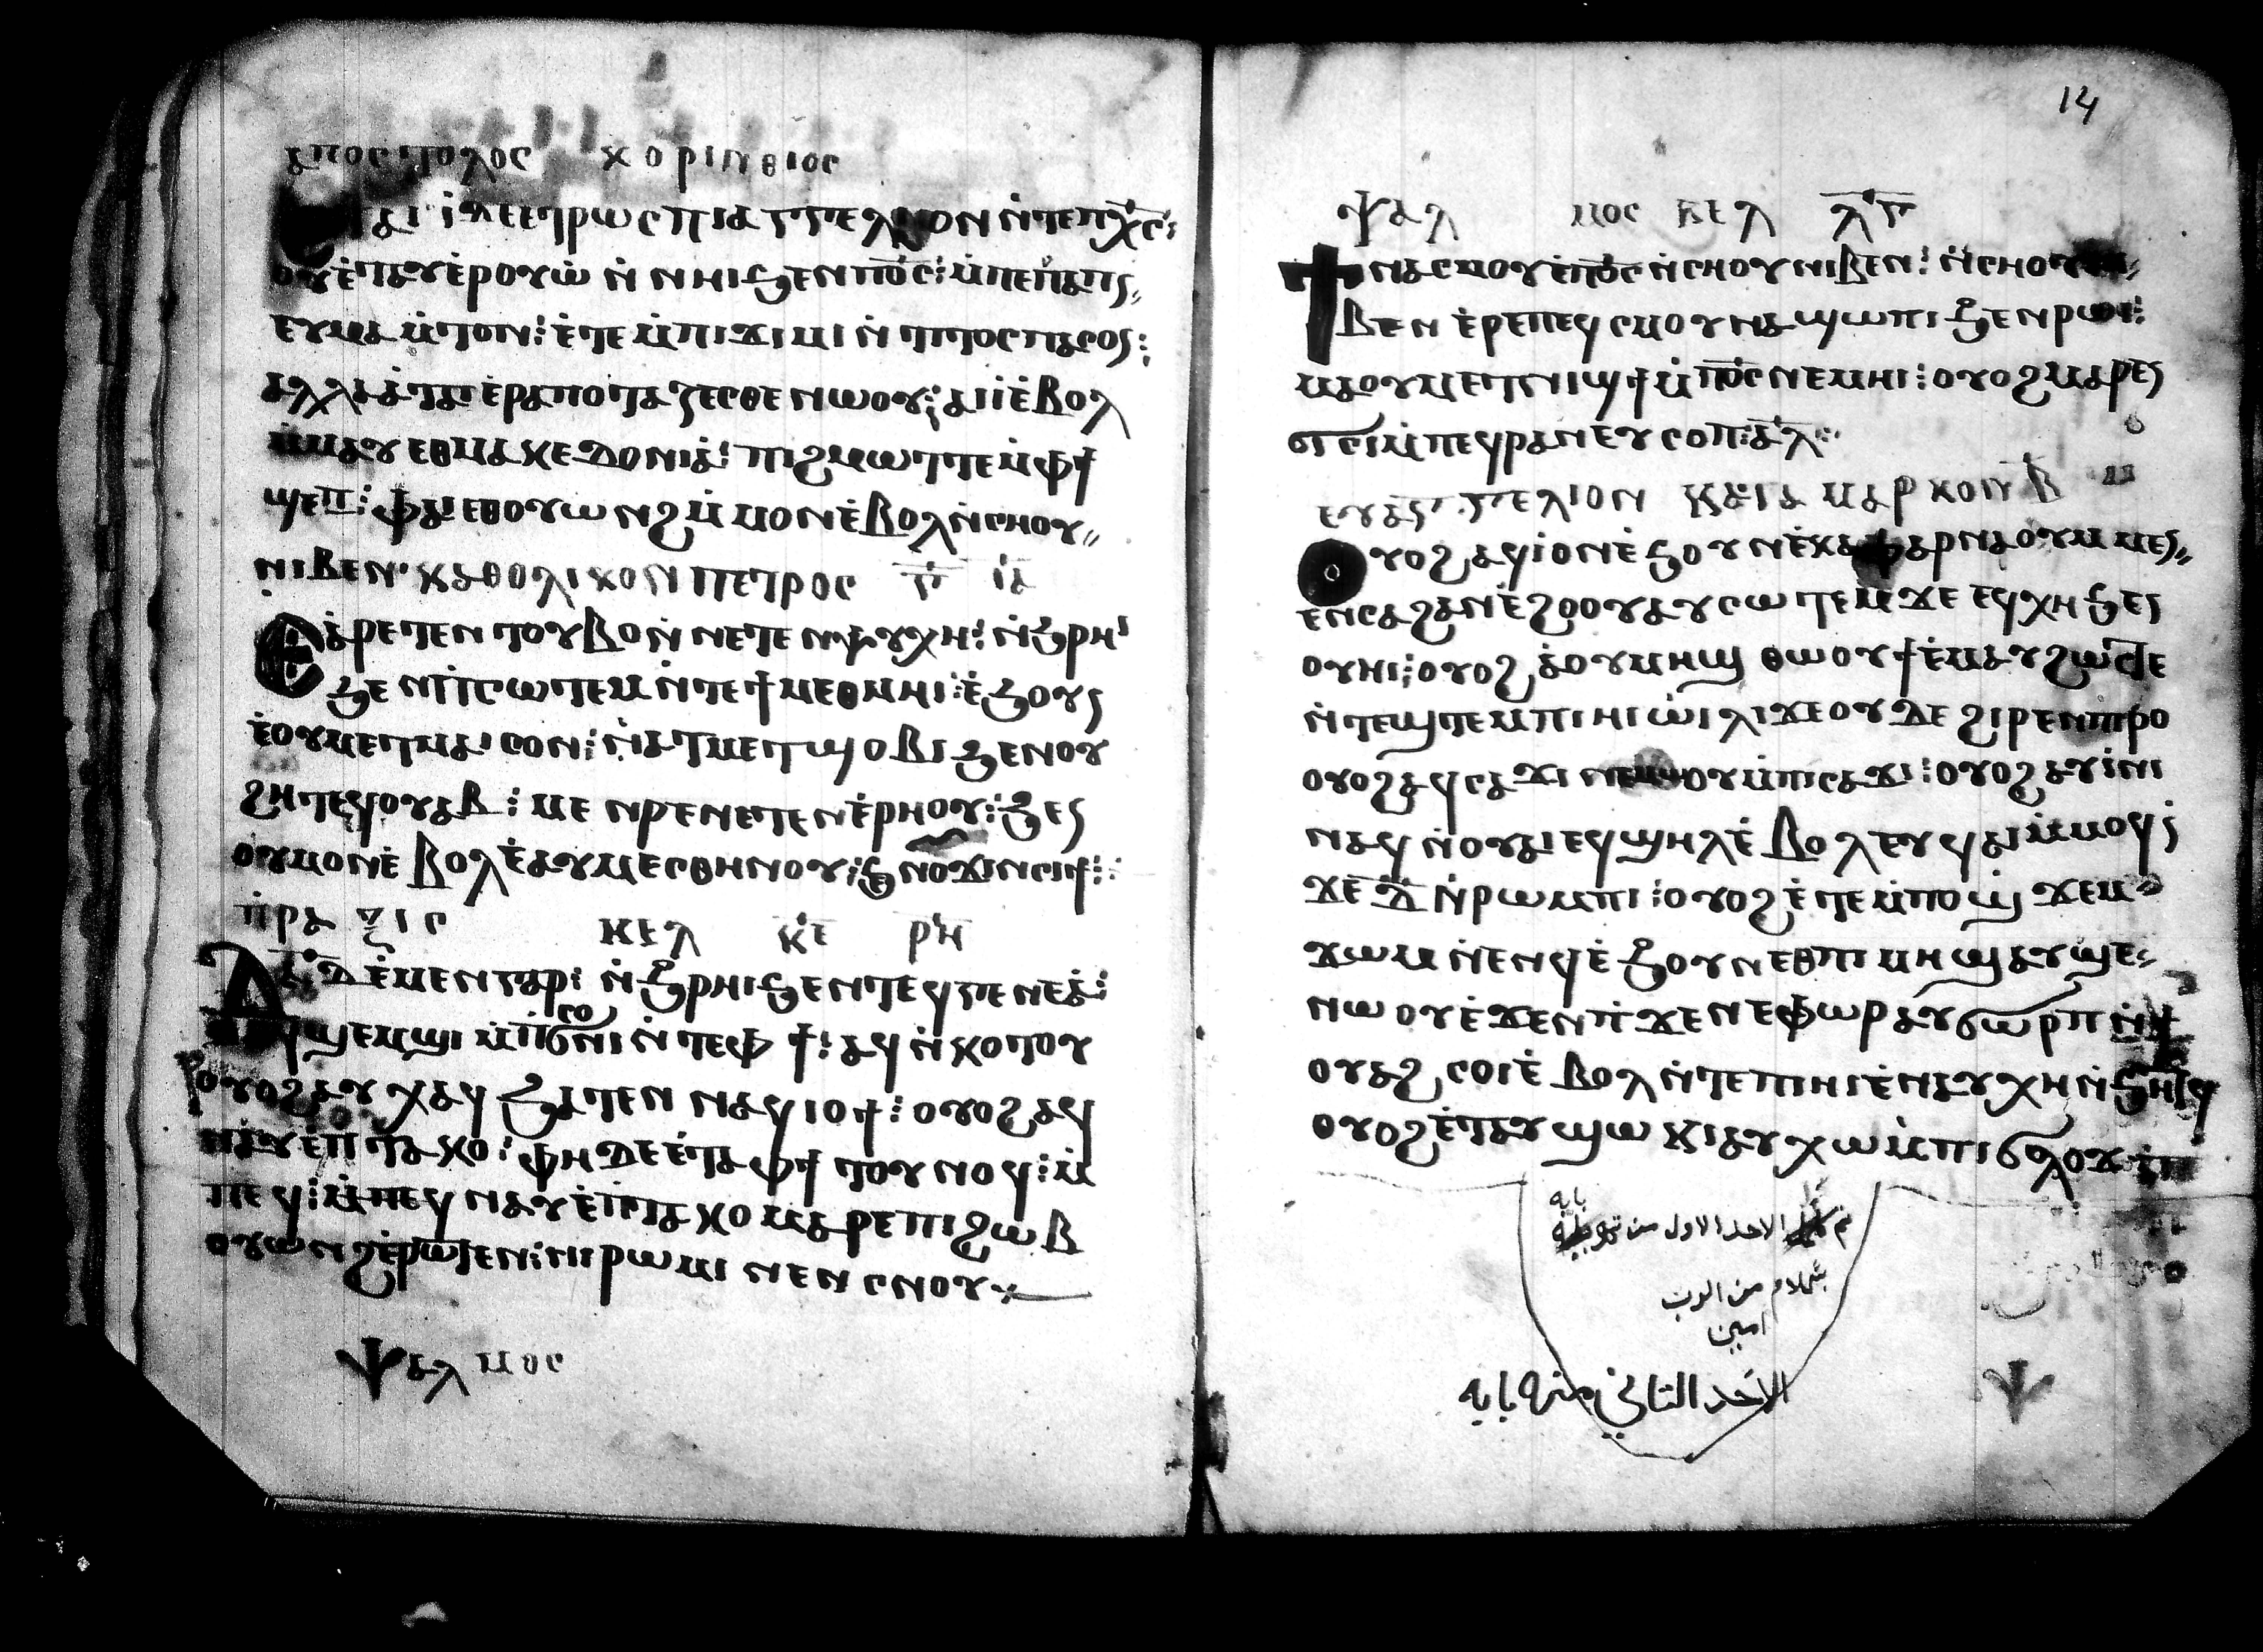 ⲁⲡⲟⲥⲧⲟⲗⲟⲥ ⲕⲟⲣⲓⲛⲑⲓⲟⲥ
ⲇⲉ ⲉⲧⲣⲱⲥ ⲡⲓⲁⲅⲅⲉⲗⲓⲟⲛ ⲛ̀ⲧⲉ ⲡⲭ̅ⲥ̅:
ⲟⲩ ⲉ̀ⲧⲁⲩⲉⲣⲟⲩⲱ̀ ⲛ̀ ⲛⲏⲓ ϧⲉⲛ ⲡⲟ̅ⲥ̅: ⲙ̀ⲡⲉ
ⲉⲩⲙⲁ ⲙ̀ⲧⲟⲛ: ⲉ̀ⲧⲉ ⲙ̀ⲡⲓϫⲓⲙⲓ ⲛ̀ ⲧⲓⲧⲟⲥ ⲡⲁⲥⲟⲛ:
ⲁⲗⲗⲁ ⲁ̀ⲧⲁⲓⲉⲣⲁⲡⲟⲧⲁⲍⲉⲥⲑⲉ ⲛⲱⲟⲩ: ⲁⲓⲓ̀ ⲉ̀ⲃⲟⲗ
ⲙ̀ⲙⲁⲩ ⲉⲑⲙⲁⲕⲉⲇⲟⲛⲓⲁ̀: ⲡⲓϩⲙⲱⲧ ⲧⲉ ⲙ̀ⲫϯ
ϣⲉⲡ: ⲫⲁⲓ ⲉⲑⲟⲩⲱⲛϩ ⲙ̀ⲙⲟⲛ ⲉ̀ⲃⲟⲗ ⲛ̀ⲥⲛⲟⲩ
ⲛⲓⲃⲉⲛ· ⲕⲁⲑⲟⲗⲓⲕⲟⲛ ⲡⲉⲧⲣⲟⲥ ⲅ̅ ⲓ̅ⲁ̅
ⲉⲁⲣⲉⲧⲉⲛ ⲧⲟⲩⲃⲟ ⲛ̀ ⲛⲉⲧⲉⲛⲯⲩⲭⲏ: ⲛ̀ϧⲣⲏⲓ
ϧⲉⲛ ⲡⲓⲥⲱⲧⲉⲙ ⲛ̀ⲧⲉ ϯⲙⲉⲑⲙⲏⲓ: ⲉ̀ϧⲟⲩⲛ
ⲉ̀ⲟⲩⲙⲉⲧⲙⲁⲓⲥⲟⲛ: ⲛ̀ⲁⲧⲙⲉⲧϣⲟⲃⲓ ϧⲉⲛ ⲟⲩ
ϩⲏⲧ ⲉϥⲟⲩⲁⲃ: ⲙⲉⲛⲣⲉ ⲛⲉⲧⲉⲛⲉ̀ⲣⲏⲟⲩ: ϧⲉⲛ
ⲟⲩⲙⲟⲩⲛ ⲉ̀ⲃⲟⲗ ⲉ̀ⲁⲩⲙⲉⲥⲑⲏⲛⲟⲩ: ϧⲉⲛ ⲟⲩϫⲓⲛⲥⲓϯ:
ⲡⲣⲁⲝⲓⲥ ⲕⲉⲗ ⲕ̅ⲉ̅ ⲣ̅ⲏ̅
ⲇⲁ̅ⲇ̅ ⲉ̀ⲙⲉⲛ ⲅⲁⲣ: ⲛ̀ϩⲣⲏⲓ ϧⲉⲛ ⲧⲉϥⲅⲉⲛⲉⲁ̀:
ⲁϥϣⲉⲙϣⲓ ⲙ̀ⲡⲥⲟϭⲛⲓ ⲛ̀ⲧⲉ ⲫϯ: ⲁϥⲛ̀ⲕⲟⲧ ⲟⲩ
ⲟⲩⲟϩ ⲁⲩⲭⲁϥ ϧⲁⲧⲉⲛ ⲛⲁϥⲓⲟϯ: ⲟⲩⲟϩ ⲁϥ
ⲛⲁⲩ ⲉ̀ⲡⲧⲁⲕⲟ: ⲫⲏ ⲇⲉ ⲉ̀ⲧⲁ ⲫϯ ⲧⲟⲩⲛⲟϥ: ⲙ
ⲡⲉϥ: ⲙ̀ⲡⲉϥⲛⲁⲩ ⲉ̀ⲡⲧⲁⲕⲟ ⲙⲁⲣⲉ ⲡⲓϩⲱⲃ
ⲟⲩⲱⲛϩ ⲉ̀ⲣⲱⲧⲉⲛ: ⲛⲓⲣⲱⲙⲓ ⲛⲉⲛⲥⲛⲟⲩ
ⲯⲁⲗⲙⲟⲥ
14
ⲯⲁⲗⲙⲟⲥ ⲕⲉⲗ ⲗ̅ⲅ̅
ϯⲛⲁⲥⲙⲟⲩ ⲉ̀ⲡⲟ̅ⲥ̅ ⲛ̀ⲥⲛⲟⲩ ⲛⲓⲃⲉⲛ: ⲛ̀ⲥⲛⲟⲩ ⲛⲓ
ⲃⲉⲛ ⲉ̀ⲣⲉ ⲡⲉϥⲥⲙⲟⲩ ⲛⲁϣⲱⲡⲓ ϧⲉⲛ ⲣⲱⲓ:
ⲙⲁⲟⲩⲙⲉⲧⲛⲓϣϯ ⲙ̀ⲡⲟ̅ⲥ̅ ⲛⲉⲙⲏⲓ: ⲟⲩⲟϩ ⲙⲁⲣⲉⲛ
ϭⲓⲥⲓ ⲙ̀ⲡⲉϥⲣⲁⲛ ⲉⲩⲥⲟⲡ: ⲁ̅ⲗ̅:
ⲉⲩⲁⲅⲅⲉⲗⲓⲟⲛ ⲕⲁⲧⲁ ⲙⲁⲣⲕⲟⲛ ⲃ̅
ⲟⲩⲟϩ ⲁϥⲓ ⲟⲛ ⲉ̀ϧⲟⲩⲛ ⲉ̀ⲕⲁⲫⲁⲣⲛⲁⲟⲩⲙ ⲙⲉⲛ
ⲉⲛⲥⲁ ϩⲁⲛⲉ̀ϩⲟⲟⲩ ⲁⲩⲥⲱⲧⲉⲙ ϫⲉ ⲉϥⲭⲏ ϧⲉⲛ
ⲟⲩⲏⲓ: ⲟⲩⲟϩ ⲁ̀ ⲟⲩⲙⲏϣ ⲑⲱⲟⲩϯ ⲉ̀ⲙⲁⲩ ϩⲱⲥⲧⲉ
ⲛ̀ⲧⲉϣⲧⲉⲙ ⲡⲓⲏⲓ ⲱ̀ⲗⲓ ϫⲉ ⲟⲩⲇⲉ ϩⲓⲣⲉⲛ ⲡⲓⲣⲟ
ⲟⲩⲟϩ ⲁϥⲥⲁϫⲓ ⲛⲉⲙⲱⲟⲩ ⲙ̀ⲡⲓⲥⲁϫⲓ: ⲟⲩⲟϩ ⲁⲩⲓ̀ⲛⲓ
ⲛⲁϥ ⲛ̀ⲟⲩⲁⲓ ⲉϥϣⲏⲗ ⲉ̀ⲃⲟⲗ ⲉⲩϥⲁⲓ ⲙ̀ⲙⲟϥ
ϫⲉ ⲇ̅ ⲛ̀ⲣⲱⲙⲓ: ⲟⲩⲟϩ ⲉ̀ⲧⲉ ⲙ̀ⲡⲟⲩϣ ϫⲉⲙ
ϫⲱⲙ ⲛ̀ⲉⲛϥ ⲉ̀ϧⲟⲩⲛ ⲉⲑⲡⲓⲙⲏϣ ⲁⲩϣⲉ
ⲛⲱⲟⲩ ⲉ̀ϫⲉⲛ ⲡϫⲉⲛⲉⲫⲱⲣ ⲁⲩϭⲱⲣⲡ ⲛ̀ϯ
ⲟⲩⲁϩⲥⲟⲓ ⲉ̀ⲃⲟⲗ ⲛ̀ⲧⲉ ⲡⲓⲏⲓ ⲉ̀ⲛⲁⲩⲭⲏ ⲛ̀ϧⲏⲧϥ
ⲟⲩⲟϩ ⲉ̀ⲧⲁⲩϣⲱⲕⲓ ⲁⲩⲭⲱ ⲙ̀ⲡⲓϭⲗⲟϫ
بابه
تم الاحد الاول من
بسلام من الرب
امين
الاحد الثاني من بابه